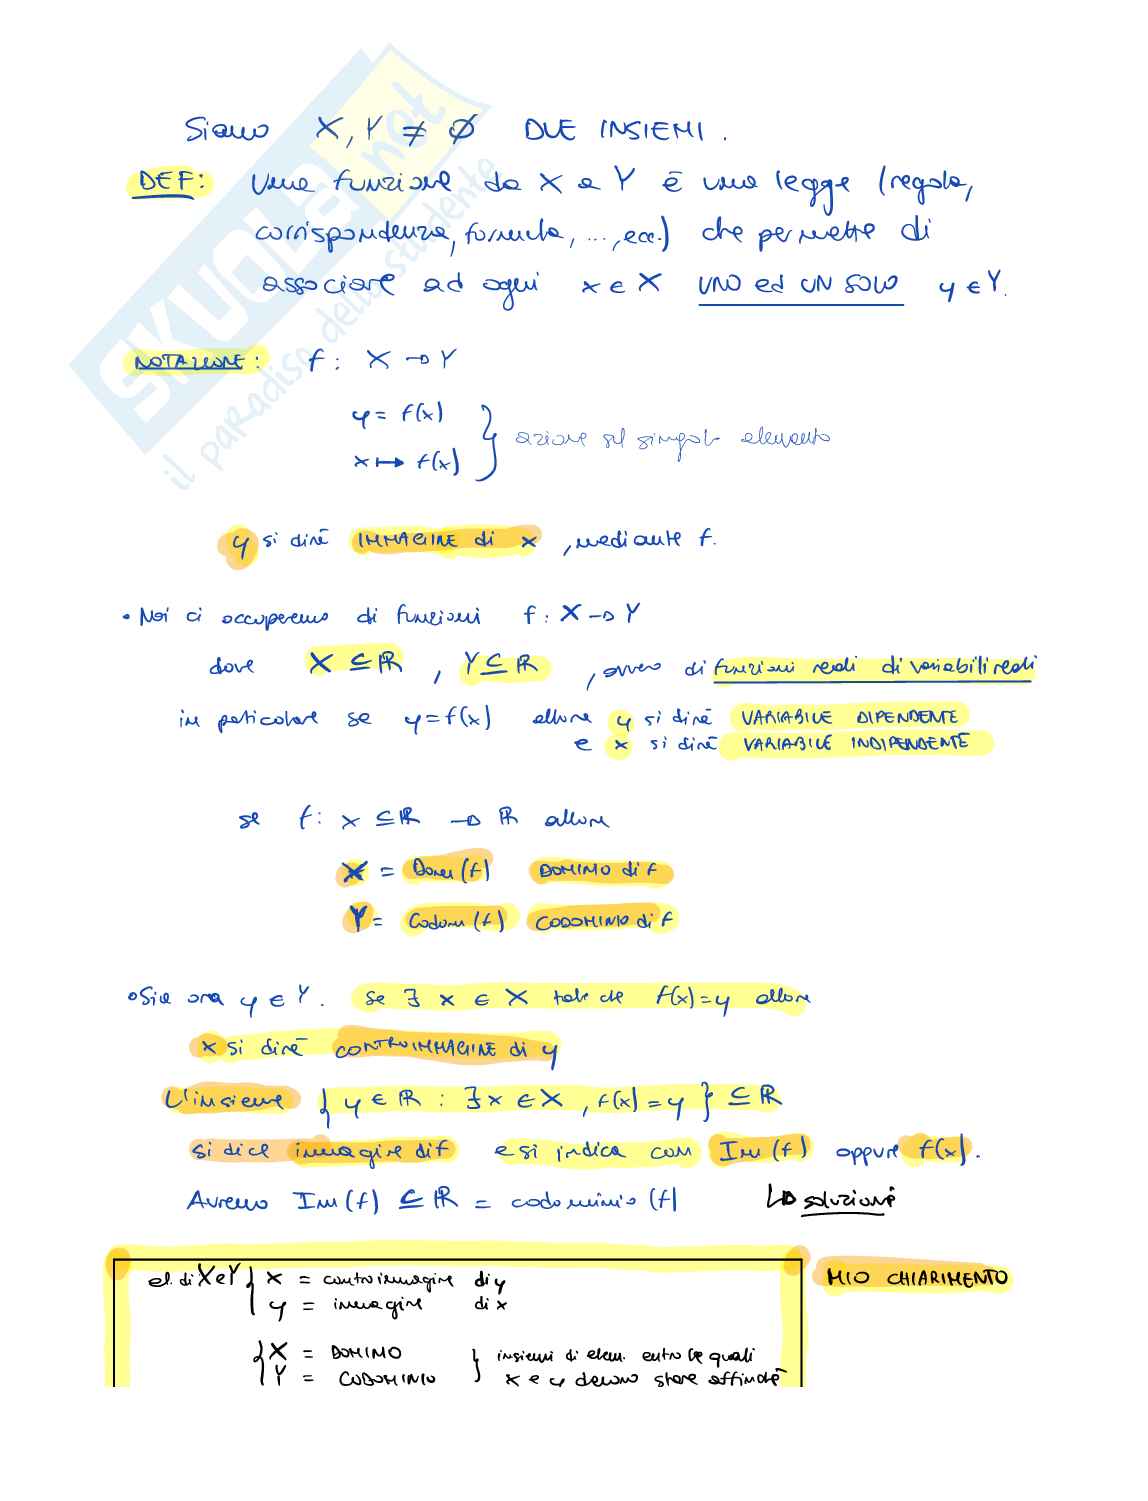 SKUOLA.net
il paradiso dello studente
Siano X, Y ≠ ∅ DUE INSIEMI.
DEF: Una funzione da X a Y è una legge (regola,
corrispondenza, formula, ..., ecc.) che permette di
associare ad ogni x ∈ X UNO ed UN SOLO y ∈ Y.
NOTAZIONE: f: X → Y
y = f(x)
x ↦ f(x) } azione sul singolo elemento
y si dirà IMMAGINE di x, mediante f.
• Noi ci occuperemo di funzioni f: X → Y
dove X ⊆ ℝ, Y ⊆ ℝ, ovvero di funzioni reali di variabili reali
in particolare se y = f(x) allora y si dirà VARIABILE DIPENDENTE
e x si dirà VARIABILE INDIPENDENTE
se f: X ⊆ ℝ → ℝ allora
X = Dom(f) DOMINIO di f
Y = Codom(f) CODOMINIO di f
• Sia ora y ∈ Y. se ∃ x ∈ X tale che f(x) = y allora
x si dirà CONTROIMMAGINE di y
L'insieme { y ∈ ℝ : ∃ x ∈ X, f(x) = y } ⊆ ℝ
si dice immagine di f e si indica con Im(f) oppure f(x).
Avremo Im(f) ⊆ ℝ = codominio (f) ↳ soluzione
el. di X e Y { x = controimmagine di y
y = immagine di x
MIO CHIARIMENTO
{ X = DOMINIO } insiemi di elem. entro le quali
Y = CODOMINIO x e y devono stare affinché